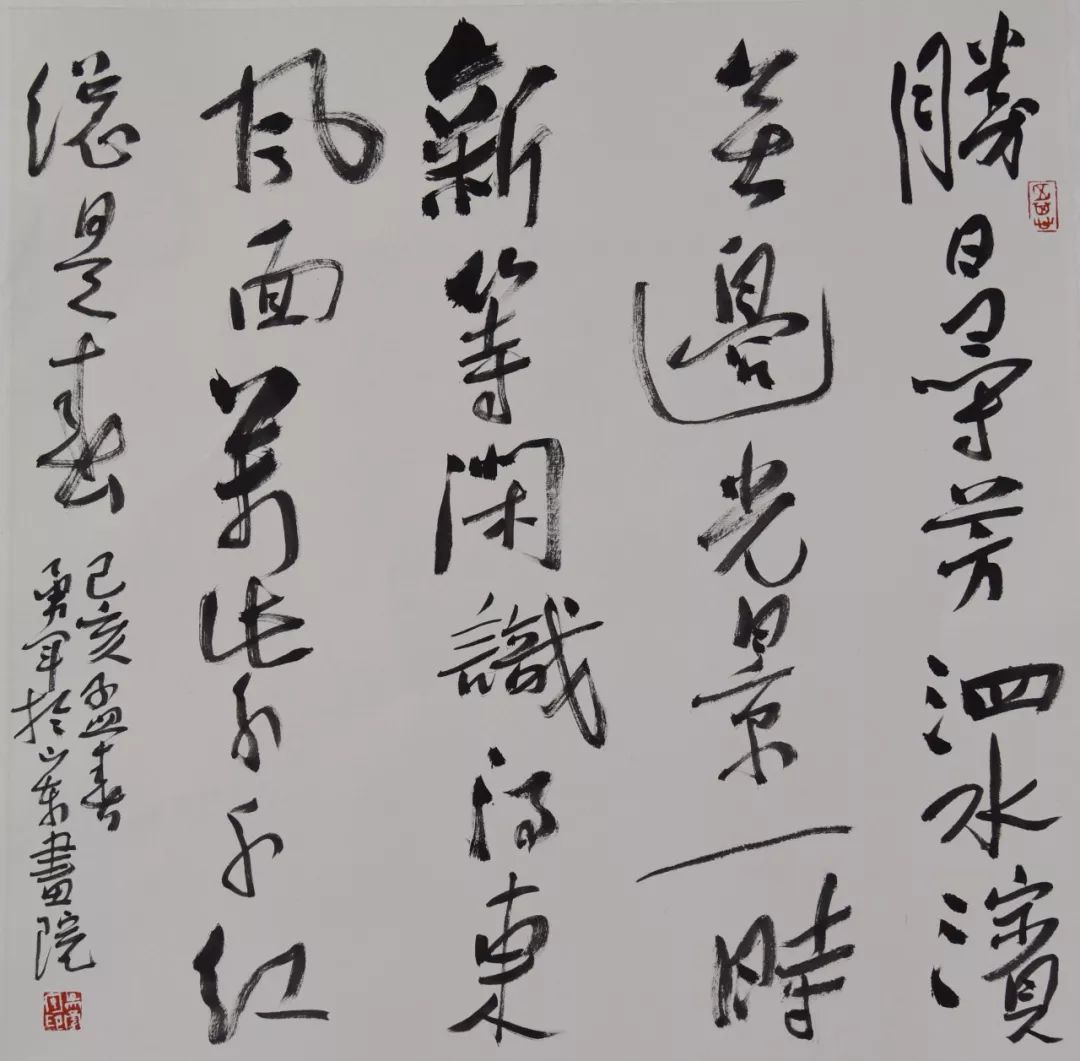 勝日尋芳泗水濱
無邊光景一時
新等閑識得東
風面萬紫千紅
總是春
己亥孟春
勇軍於山東畫院